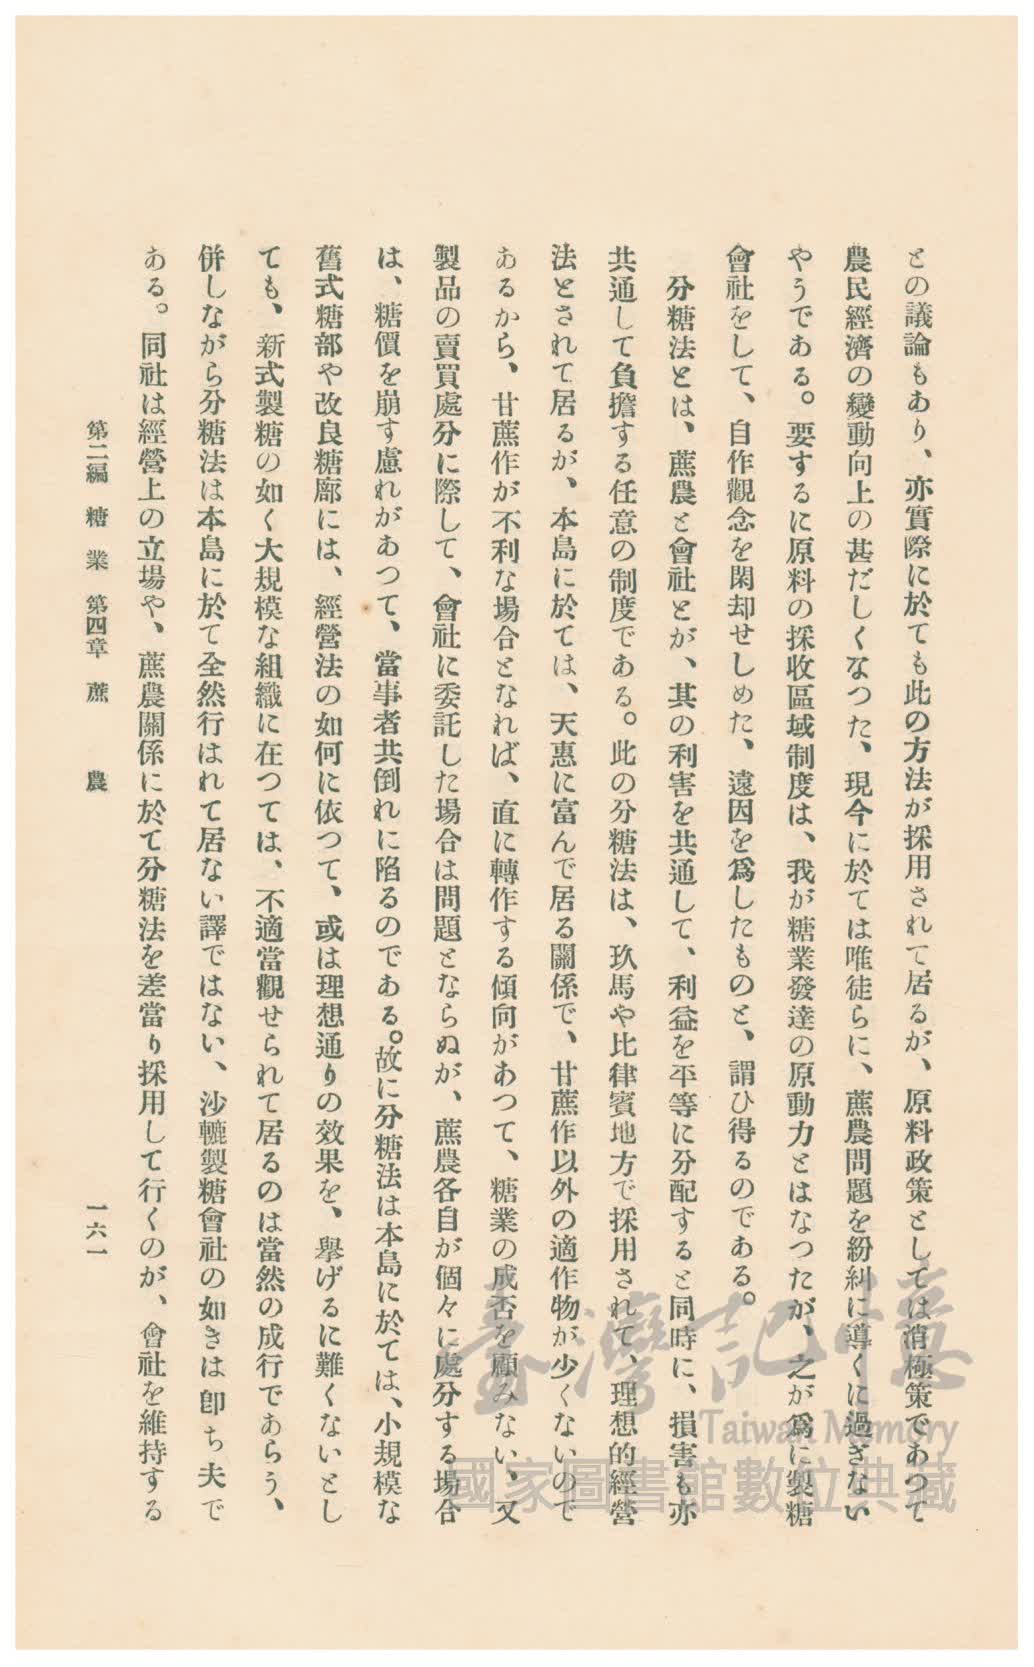 との議論もあり、亦實際に於ても此の方法が採用されて居るが、原料政策としては消極策であつて
農民經濟の變動向上の甚だしくなつた、現今に於ては唯徒らに、蔗農問題を紛糾に導くに過ぎない
やうである。要するに原料の採收區域制度は、我が糖業發達の原動力とはなつたが、之が爲に製糖
會社をして、自作觀念を閑却せしめた、遠因を爲したものと、謂ひ得るのである。
分糖法とは、蔗農と會社とが、其の利害を共通して、利益を平等に分配すると同時に、損害も亦
共通して負擔する任意の制度である。此の分糖法は、玖馬や比律賓地方で採用されて、理想的經營
法とされて居るが、本島に於ては、天惠に富んで居る關係で、甘蔗作以外の適作物が少くないので
あるから、甘蔗作が不利な場合となれば、直に轉作する傾向があつて、糖業の成否を顧みない、又
製品の賣買處分に際して、會社に委託した場合は問題とならぬが、蔗農各自が個々に處分する場合
は、糖價を崩す慮れがあつて、當事者共倒れに陷るのである。故に分糖法は本島に於ては、小規模な
舊式糖部や改良糖廍には、經營法の如何に依つて、或は理想通りの效果を、擧げるに難くないとし
ても、新式製糖の如く大規模な組織に在つては、不適當觀せられて居るのは當然の成行であらう、
併しながら分糖法は本島に於て全然行はれて居ない譯ではない、沙轆製糖會社の如きは卽ち夫で
ある。同社は經營上の立場や、蔗農關係に於て分糖法を差當り採用して行くのが、會社を維持する
第二編 糖業 第四章 蔗農
一六一
臺灣記憶
Taiwan Memory
國家圖書館數位典藏